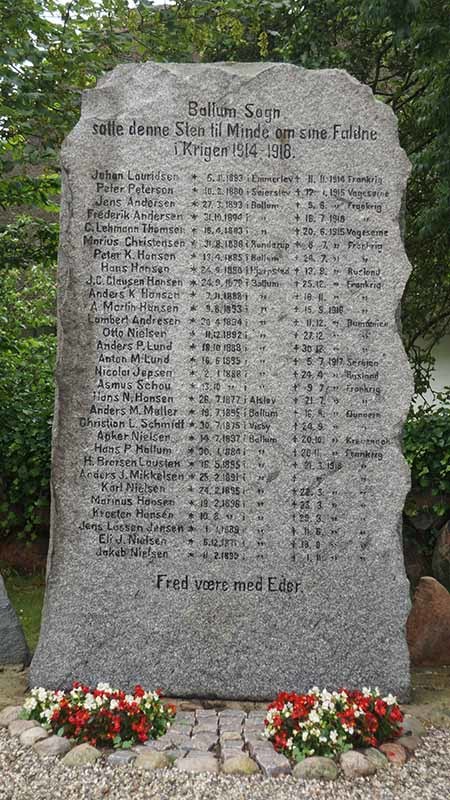 Ballum Sogn
satte denne Sten til Minde om sine Faldne
i Krigen 1914-1918.
Johan Lauridsen * 5.11.1893 i Emmerlev † 11.11.1914 Frankrig
Peter Peterson * 10.2.1880 i Seierslev † 1.1915 Vogeserne
Jens Andersen * 27.3.1893 i Ballum † 5.6. „ Frankrig
Frederik Andersen * 31.10.1894 i „ † 16.7.1916
C. Lehmann Thomsen * 16.4.1883 i „ † 20.6.1915 Vogeserne
Marius Christensen * 31.8.1896 i Randerup † 8.7. „ Frankrig
Peter K. Hansen * 13.4.1885 i Ballum † 24.7. „ „
Hans Hansen * 24.9.1890 i Hjerpsted † 12.8. „ Rusland
J.C. Clausen Hansen * 24.9.1879 i Ballum † 25.12. „ Frankrig
Anders K. Hansen * 7.11.1888 i „ † 18.11. „ „
A. Martin Hansen * 9.8.1893 i „ † 15.9.1916 „
Lambert Andresen * 20.4.1894 i „ † 11.12. „ Rumænien
Otto Nielsen * 11.12.1892 i „ † 27.12. „ „
Anders P. Lund * 18.10.1888 i „ † 30.12. „ „
Anton M. Lund * 16.6.1895 i „ † 5.7.1917 Serbien
Nicolai Jepsen * 2.1.1888 i „ † 24.4. „ Rusland
Asmus Schou * 13.10. „ i „ † 9.7. „ Frankrig
Hans N. Hansen * 26.7.1877 i Alslev † 21.7. „ „
Anders M. Møller * 19.7.1895 i Ballum † 16.8. „ Flandern
Christian L. Schmidt * 30.7.1875 i Visby † 24.9. „ „
Anker Nielsen * 14.7.1897 i Ballum † 20.10. „
Hans P. Hallum * 30.1.1884 i „ † 20.11. „ Frankrig
H. Brorsen Lausten * 16.5.1895 i „ † 21.3.1918 „
Anders J. Mikkelsen * 25.2.1891 i „ † „ „ „
Karl Nielsen * 24.2.1895 i „ † 22.3. „ „
Marinus Hansen * 19.2.1896 i „ † 23.3. „ „
Kresten Hansen * 10.8. „ i „ † 29.3. „ „
Jens Lassen Jensen * 1.1.1889 i „ † 11.6. „ „
Eli J. Nielsen * 6.12.1871 i „ † 18.9. „ „
Jakob Nielsen * 11.2.1890 i „ † 1.11. „ „
Fred være med Eder.